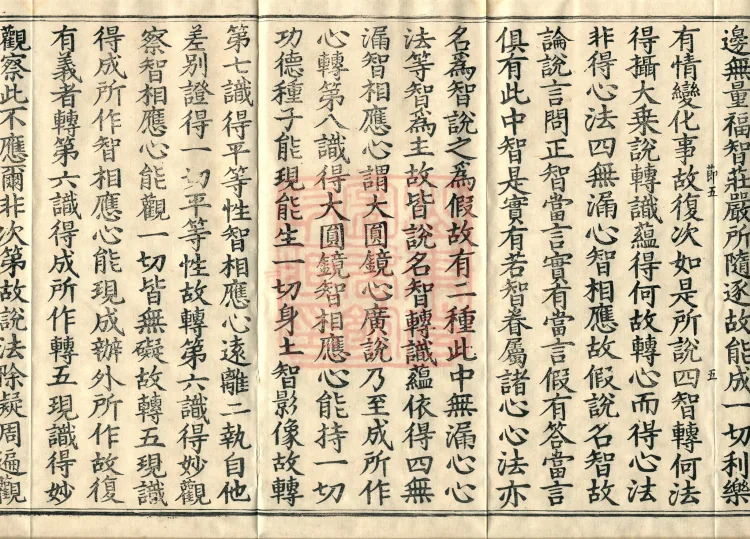 邊無量福智莊嚴所隨逐故能成一切利樂
有情變化事故復次如是所說四智轉何法
節五
五
得攝大乗說轉識蘊得何故轉心而得心法
非得心法四無漏心智相應故假說名智故
論說言問正智當言實有當言假有答當言
俱有此中智是實有若智眷屬諸心心法亦
名爲智說之爲假故有二種此中無漏心心
法等智爲主故皆說名智轉識蘊依得四無
漏智相應心謂大圓鏡心廣說乃至成所作
心轉第八識得大圓鏡智相應心能持一切
功德種子能現能生一切身土智影像故轉
第七識得平等性智相應心遠離二執自他
差別證得一切平等性故轉第六識得妙觀
察智相應心能觀一切皆無礙故轉五現識
得成所作智相應心能現成辦外所作故復
有義者轉第六識得成所作轉五現識得妙
觀察此不應爾非次第故說法除疑周遍觀